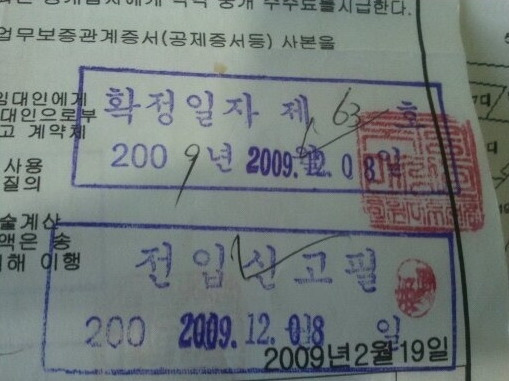 중개 수수료를 지급한다.
업무보증관계증서(공제증서등) 사본을
임대인에게
대인으로부
고 계약체
사용
질의
확정일자 제 63 호
2009년 2009.12.08일
술계산
액은 송
해 이행
전입신고필
200 2009.12.08 일
2009년2월19일